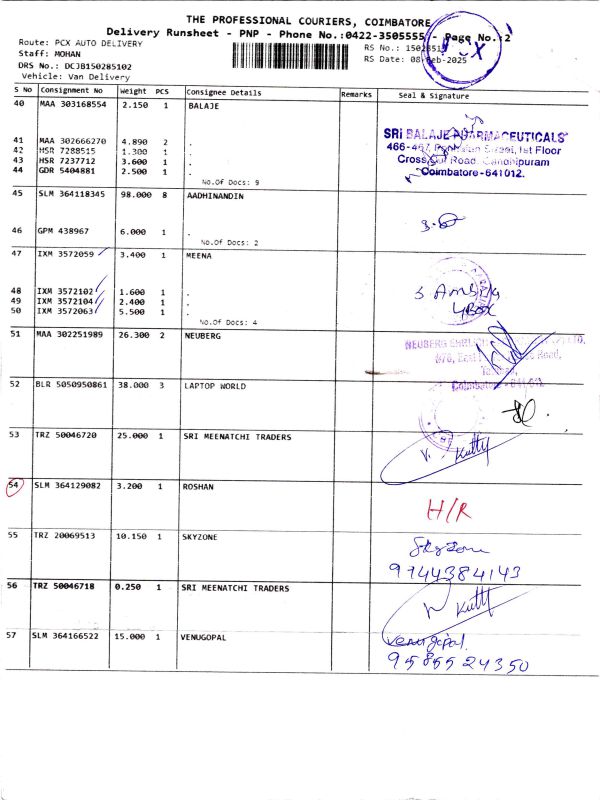 THE PROFESSIONAL COURIERS, COIMBATORE
Delivery Runsheet - PNP - Phone No.:0422-3505555 - Page No.:2
Route: PCX AUTO DELIVERY
Staff: MOHAN
DRS No.: DCJB150285102
Vehicle: Van Delivery
RS No.:
RS Date: 08-Feb-2025
PCX
S No Consignment No Weight PCS Consignee Details Remarks Seal & Signature
40 MAA 303168554 2.150 1 BALAJE
41 MAA 302666270 4.890 2 .
42 HSR 7288515 1.300 1 .
43 HSR 7237712 3.600 1 .
44 GDR 5404881 2.500 1 .
No.Of Docs: 9
SRI BALAJE PHARMACEUTICALS
466-467, Street, Ist Floor
Cross Cut Road, Gandhipuram
Coimbatore-641012.
45 SLM 364118345 98.000 8 AADHINANDIN
46 GPM 438967 6.000 1 .
No.Of Docs: 2
47 IXM 3572059 3.400 1 MEENA
48 IXM 3572102 1.600 1 .
49 IXM 3572104 2.400 1 .
50 IXM 3572063 5.500 1 .
No.Of Docs: 4
4 BOX
51 MAA 302251989 26.300 2 NEUBERG
NEUBERG EHRLICH LTD,
Road,
Coimbatore - 641 012
52 BLR 5050950861 38.000 3 LAPTOP WORLD
53 TRZ 50046720 25.000 1 SRI MEENATCHI TRADERS
V. Kutty
54 SLM 364129082 3.200 1 ROSHAN
H/R
55 TRZ 20069513 10.150 1 SKYZONE
Skyzone
9144384143
56 TRZ 50046718 0.250 1 SRI MEENATCHI TRADERS
V Kutty
57 SLM 364166522 15.000 1 VENUGOPAL
Venugopal.
9585524350